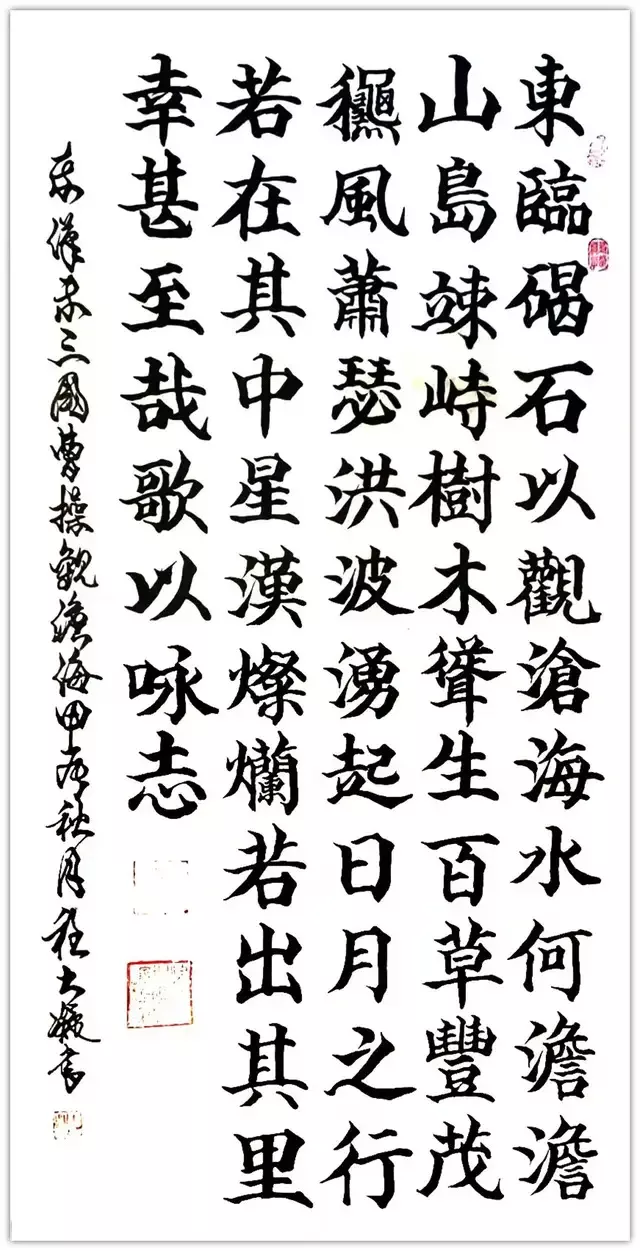 東臨碣石以觀滄海水何澹澹
山島竦峙樹木聳生百草豐茂
龝風蕭瑟洪波湧起日月之行
若在其中星漢燦爛若出其里
幸甚至哉歌以咏志
东漢末三國曹操觀滄海甲辰秋月程大凝書